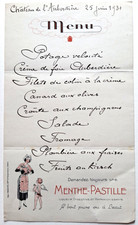 Château de l'Aubardière 25 Juin 1931
Menu
Potage velouté
Crème de foin Dubardière
Filets de colin à la crème
Canard aux olives
Croûte aux champignons
Salade
Fromage
Plombière aux fraises
Fruits au Kirsch
Demandez toujours une
MENTHE-PASTILLE